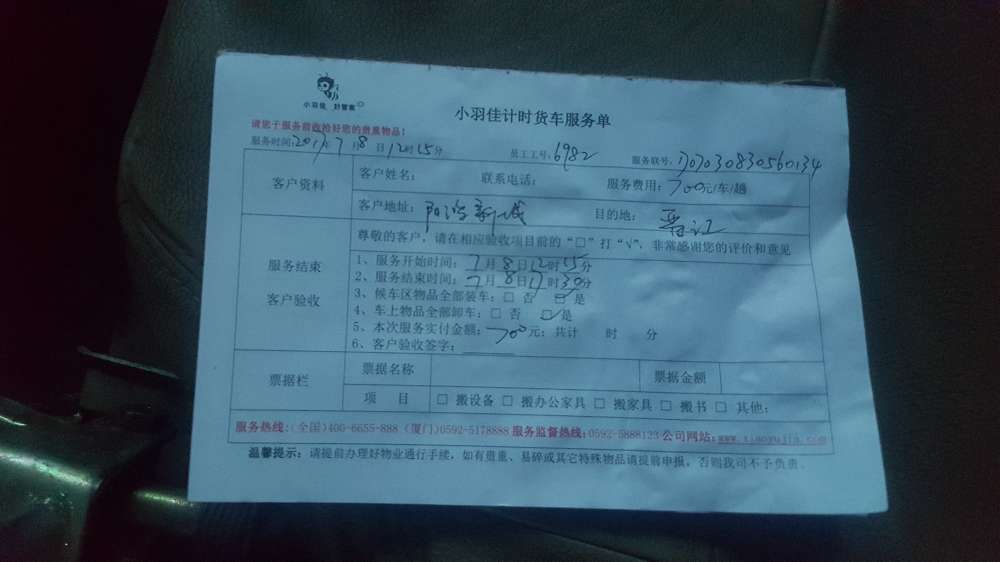 小羽佳 好管家
小羽佳计时货车服务单
请您于服务前收拾好您的贵重物品!
服务时间:2017年7月8日12时15分 员工工号:6982 服务联号:1707030830560134
客户资料 客户姓名: 联系电话: 服务费用:700元/车/趟
客户地址:阳光新城 目的地:晋江
服务结束 客户验收
尊敬的客户,请在相应验收项目前的“□”打“√”,非常感谢您的评价和意见
1、服务开始时间:7月8日12时55分
2、服务结束时间:7月8日17时30分
3、候车区物品全部装车:□ 否 ☑是
4、车上物品全部卸车:□ 否 ☑是
5、本次服务实付金额:700元;共计 时 分
6、客户验收签字:
票据栏 票据名称 票据金额
项 目 □ 搬设备 □ 搬办公家具 □ 搬家具 □ 搬书 □ 其他:
服务热线:(全国)400-6655-888 (厦门)0592-5178888 服务监督热线:0592-5888123 公司网站:www.xiaoyujia.com
温馨提示:请提前办理好物业通行手续,如有贵重、易碎或其它特殊物品请提前申报,否则我司不予负责。